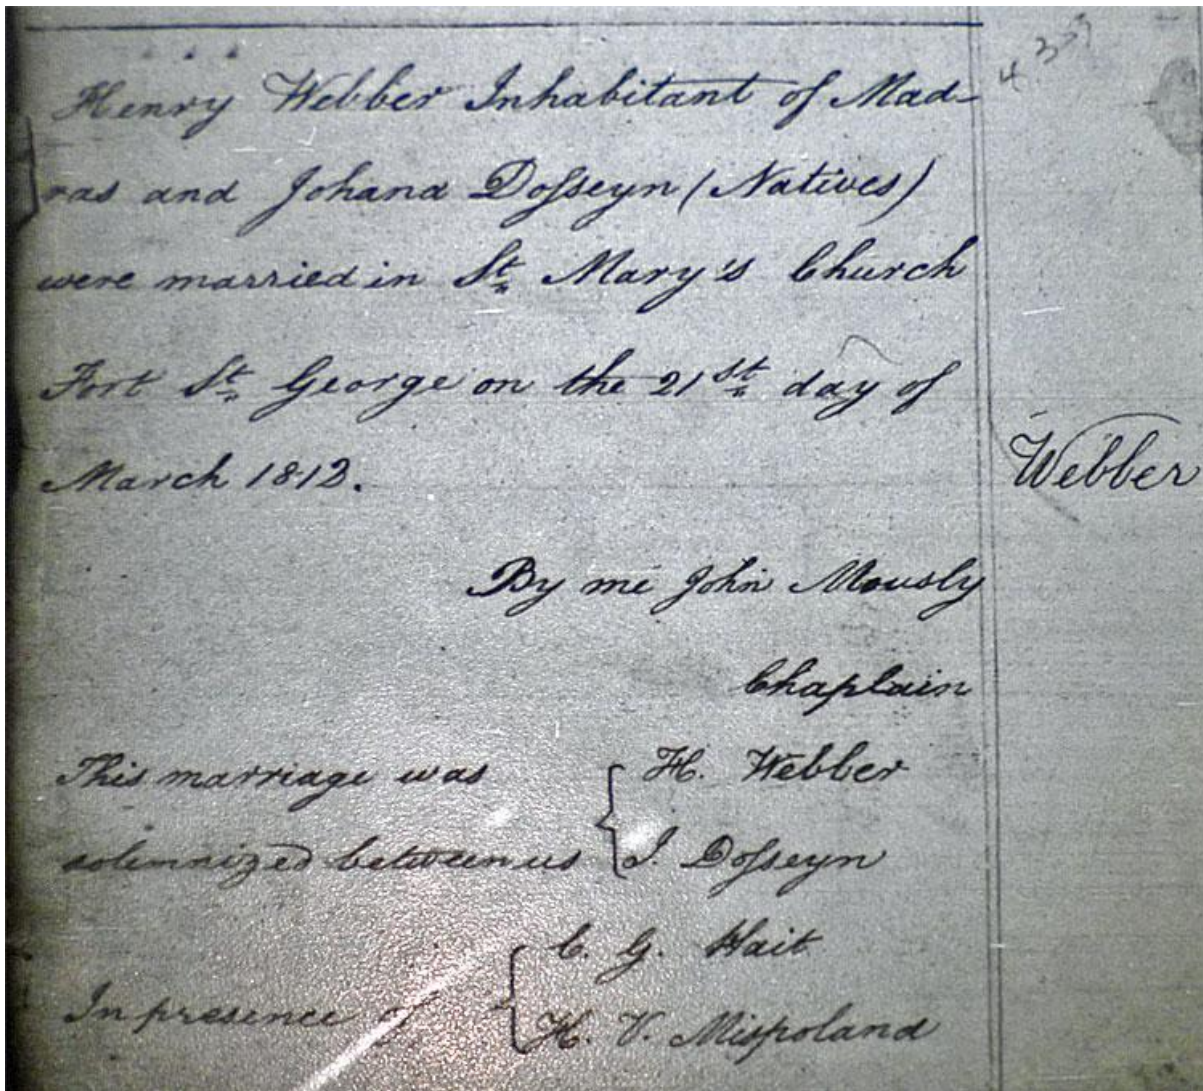 Henry Webber Inhabitant of Mad-
ras and Johana Dofseyn (Natives)
were married in St. Mary's Church
Fort St. George on the 21st day of
March 1812.
Webber
By me John Mously
Chaplain
This marriage was
solemnized between us
H. Webber
J. Dofseyn
In presence of
C. G. Wait
H. V. Mispoland